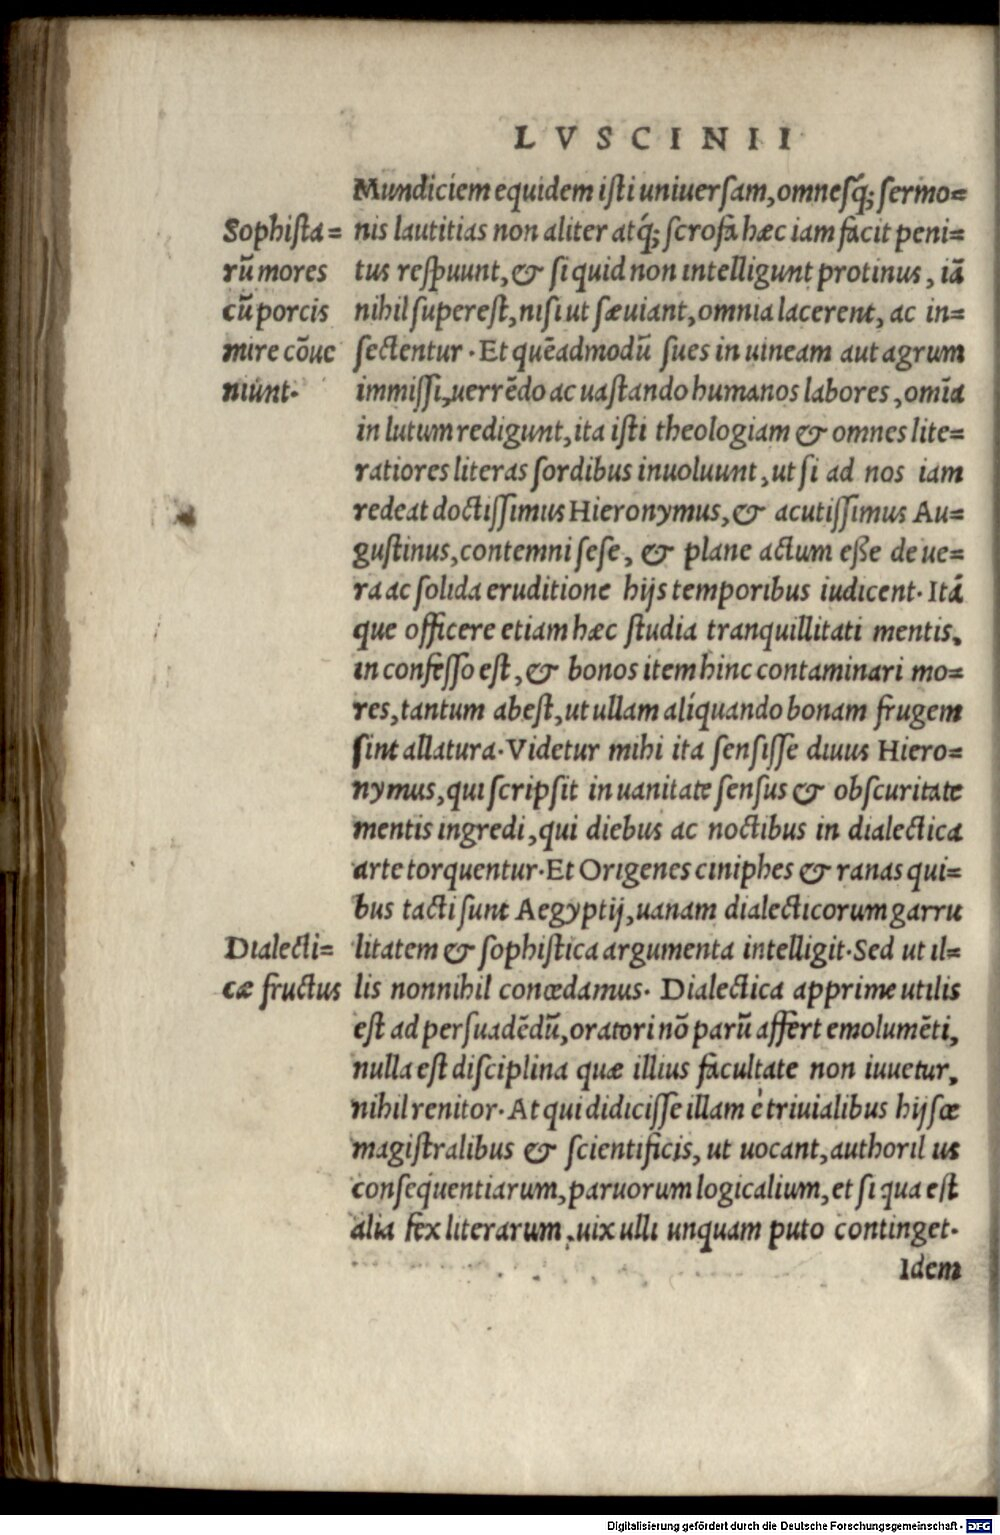 LVSCINII
Mundiciem equidem iſti uniuerſam, omneſq́; ſermo=
nis lautitias non aliter atq́; ſcrofa hæc iam facit peni=
tus reſpuunt, & ſi quid non intelligunt protinus, iã
nihil ſupereſt, niſi ut ſæuiant, omnia lacerent, ac in=
ſectentur. Et quẽadmodũ ſues in uineam aut agrum
immiſſi, uerrẽdo ac uaſtando humanos labores, omĩa
in lutum redigunt, ita iſti theologiam & omnes lite=
ratiores literas ſordibus inuoluunt, ut ſi ad nos iam
redeat doctiſſimus Hieronymus, & acutiſſimus Au=
guſtinus, contemni ſeſe, & plane actum eße de ue=
ra ac ſolida eruditione hijs temporibus iudicent. Itá
que officere etiam hæc ſtudia tranquillitati mentis,
in confeſſo eſt, & bonos item hinc contaminari mo=
res, tantum abeſt, ut ullam aliquando bonam frugem
ſint allatura. Videtur mihi ita ſenſiſſe diuus Hiero=
nymus, qui ſcripſit in uanitate ſenſus & obſcuritate
mentis ingredi, qui diebus ac noctibus in dialectica
arte torquentur. Et Origenes ciniphes & ranas qui=
bus tacti ſunt Aegyptij, uanam dialecticorum garru
litatem & ſophiſtica argumenta intelligit. Sed ut il=
lis nonnihil concedamus. Dialectica apprime utilis
eſt ad perſuadẽdũ, oratori nõ parũ affert emolumẽti,
nulla eſt diſciplina quæ illius facultate non iuuetur,
nihil renitor. At qui didiciſſe illam è triuialibus hijſce
magiſtralibus & ſcientificis, ut uocant, authoril us
conſequentiarum, paruorum logicalium, et ſi qua eſt
alia fex literarum, uix ulli unquam puto continget.
Idem
Sophiſta=
rũ mores
cũ porcis
mire cõue
niunt.
Dialecti=
cæ fructus
Digitalisierung gefördert durch die Deutsche Forschungsgemeinschaft - DFG